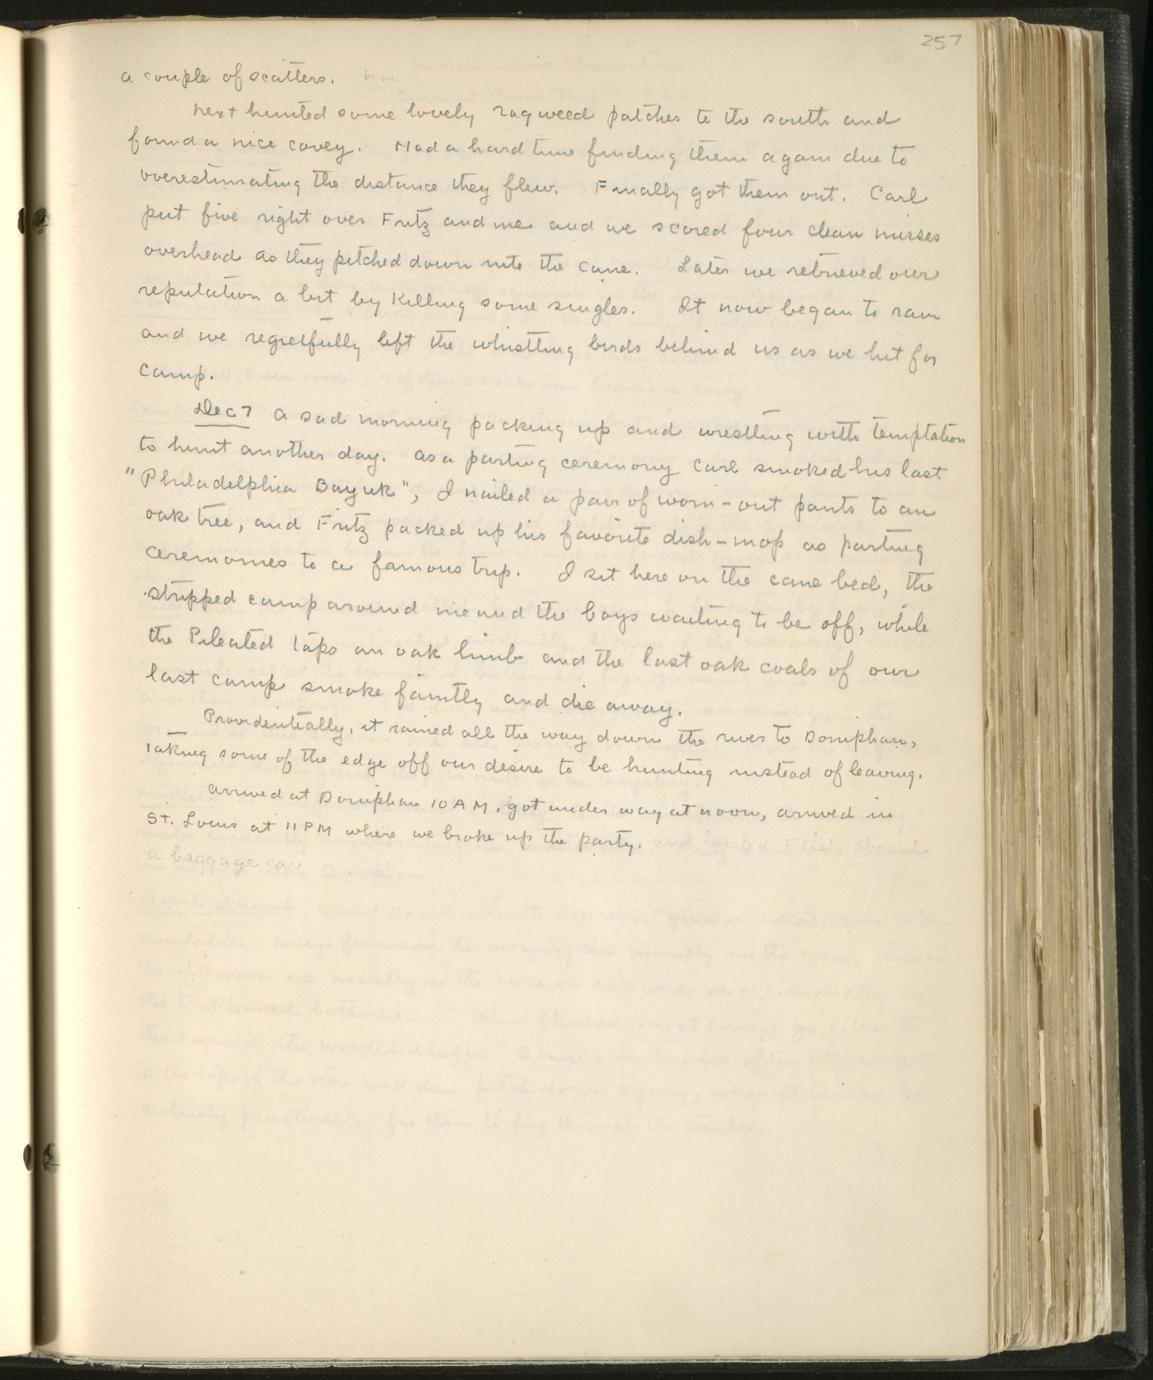 257
a couple of scatters.
Next hunted some lovely ragweed patches to the south and
found a nice covey. Had a hard time finding them again due to
overestimating the distance they flew. Finally got them out. Carl
put five right over Fritz and me and we scored four clean misses
overhead as they pitched down into the cane. Later we retrieved our
reputation a bit by killing some singles. It now began to rain
and we regretfully left the whistling birds behind us as we hit for
camp.
Dec 7 A sad morning packing up and wrestling with temptation
to hunt another day. As a parting ceremony Carl smoked his last
"Philadelphia Bayuk", I nailed a pair of worn-out pants to an
oak tree, and Fritz packed up his favorite dish-mop as parting
ceremonies to a famous trip. I sit here on the cane bed, the
stripped camp around me and the boys waiting to be off, while
the Pileated taps an oak limb and the last oak coals of our
last camp smoke faintly and die away.
Providentially, it rained all the way down the river to Doniphan,
taking some of the edge off our desire to be hunting instead of leaving.
Arrived at Doniphan 10 AM, got under way at noon, arrived in
St. Louis at 11 PM where we broke up the party, and loaded Flick aboard
a baggage car